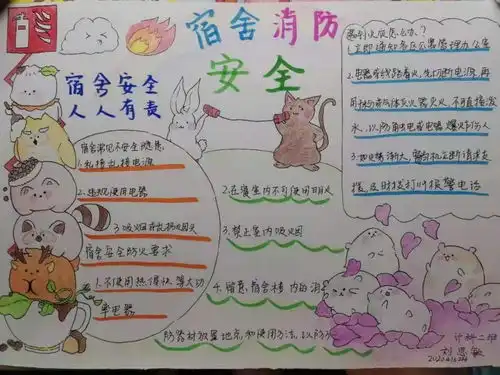 宿舍消防
安全
宿舍安全
人人有责
宿舍常见不安全隐患
1.私撞乱接电源
2.违规使用电器
3.吸烟
宿舍安全防火要求
1.不使用热得快等大功
率电器
2.在寝室内不可使用明火
3.禁止室内吸烟
4.留意宿舍楼内的消
防器材放置地点和使用方法,以防
遇到火灾怎么办?
1.立即通知各区公寓管理办公室
2.电器或线路着火,先切断电源,再
用干粉或气体灭火器灭火,不可直接泼
水,以防触电或电器爆炸伤人
3.如火势渐大,
援,及时拨打119报警电话
计科二班
刘思敏